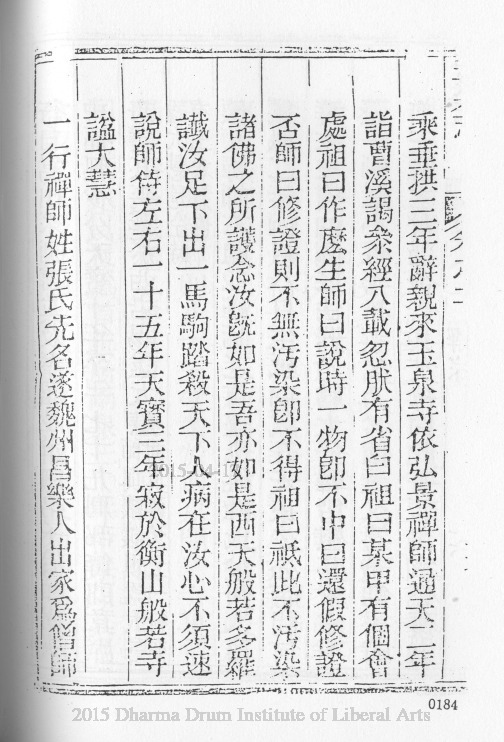 乘垂拱三年辭親來玉泉寺依弘景禪師通天二年
詣曹溪謁叅經八載忽肰有省白祖曰某甲有個會
處祖曰作麽生師曰說時一物卽不中曰還假修證
否師曰修證則不無汚染卽不得祖曰祗此不汚染
諸佛之所護念汝旣如是吾亦如是西天般若多羅
讖汝足下出一馬駒踏殺天下人病在汝心不須速
說師侍左右一十五年天寶三年寂於衡山般若寺
諡大慧
一行禪師姓張氏先名遂魏州昌樂人出家爲僧師
0184
2015 Dharma Drum Institute of Liberal Arts